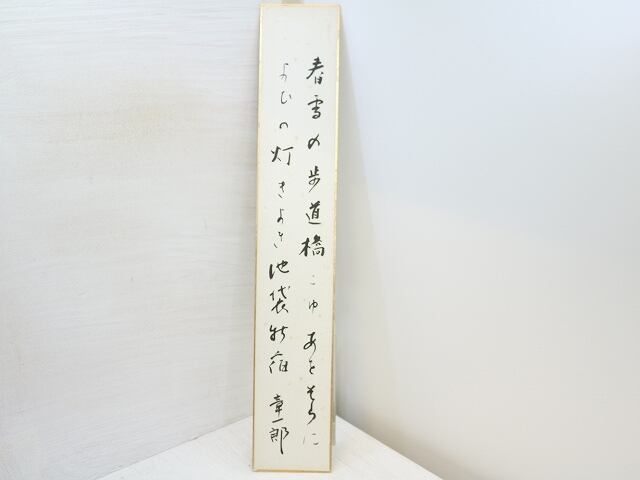 春雪の歩道橋こゆあをぞらに
よひの灯きよき池袋新宿 章一郎